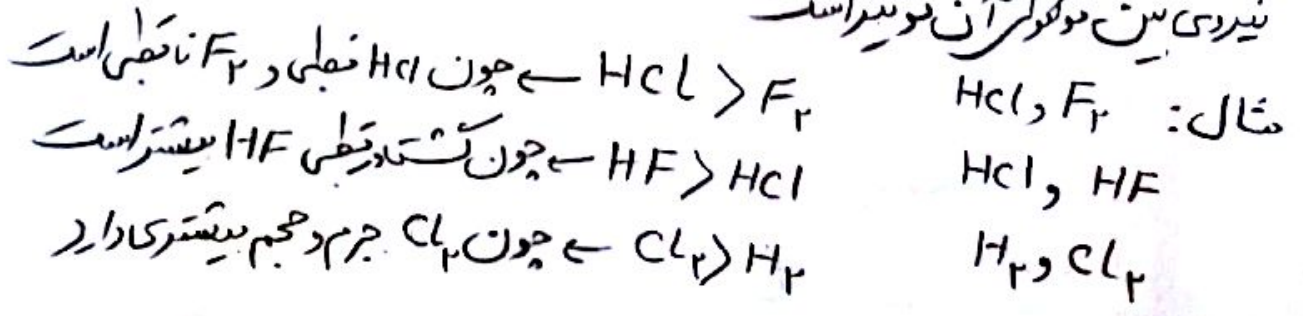 نیروی بین مولکولی آن قوی‌تر است
مثال: HCl و F₂ HCl > F₂ ← چون HCl قطبی و F₂ ناقطبی است
HCl و HF HF > HCl ← چون گشتاور قطبی HF بیشتر است
H₂ و Cl₂ Cl₂ > H₂ ← چون Cl₂ جرم و حجم بیشتری دارد